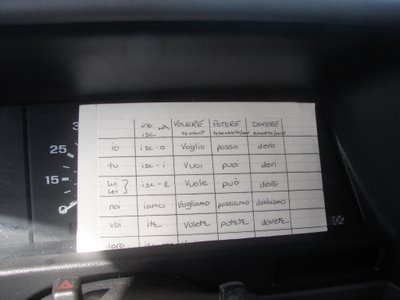 3
25
15
0
IRE with VOLERE POTERE DOVERE
ISC to want
io isc-o Voglio posso devo
tu isc-i Vuoi puoi devi
lui lei } isc-E Vuole può deve
noi iamo Vogliamo possiamo dobbiamo
voi ITE Volete potete dovete
loro
1/2